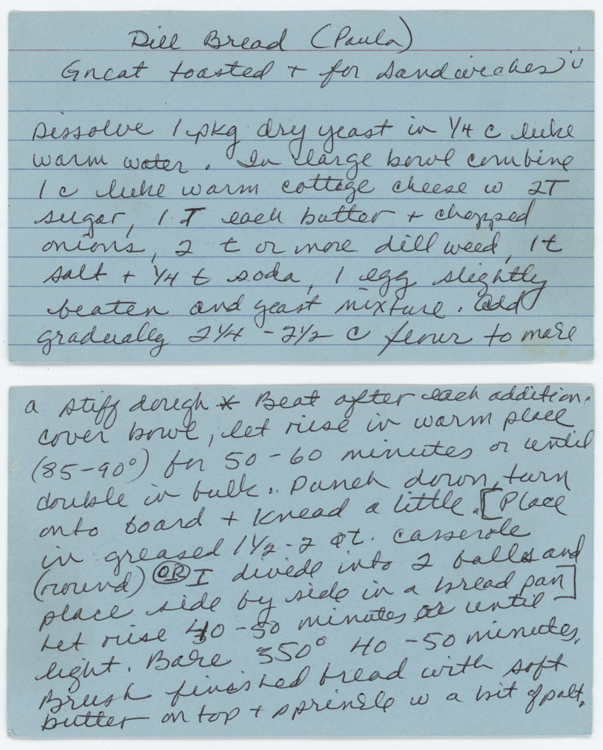 Dill Bread (Paula)
Great toasted + for sandwiches
Dissolve 1 pkg dry yeast in 1/4 c luke
warm water. In large bowl combine
1 c luke warm cottage cheese w 2T
sugar, 1 T each butter + chopped
onions, 2 t or more dill weed, 1 t
salt + 1/4 t soda, 1 egg slightly
beaten and yeast mixture. Add
gradually 2 1/4 - 2 1/2 c flour to make
a stiff dough * Beat after each addition.
cover bowl, let rise in warm place
(85-90°) for 50-60 minutes or until
double in bulk. Punch down, turn
onto board + knead a little. [Place
in greased 1 1/2-2 qt. casserole
(round) OR I divide into 2 balls and
place side by side in a bread pan]
Let rise 40-50 minutes or until
light. Bake 350° 40-50 minutes.
Brush finished bread with soft
butter on top + sprinkle w a bit of salt.